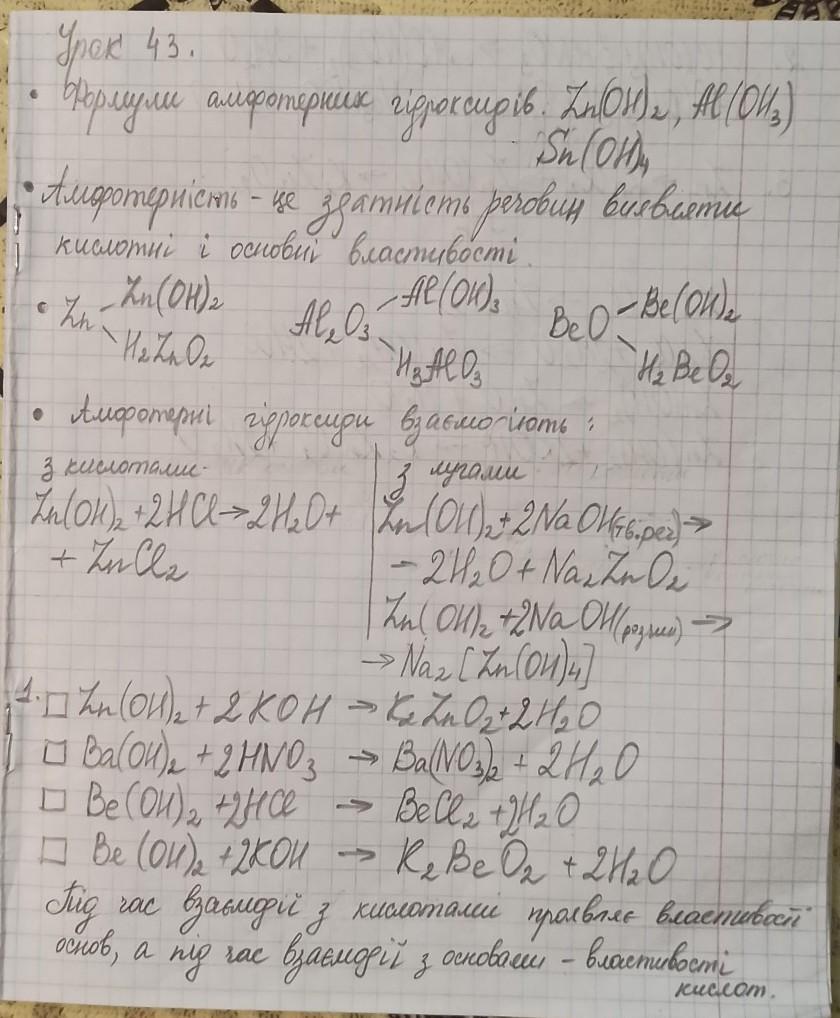 Урок 43.
• Формули амфотерних гідроксидів. Zn(OH)₂, Al(OH₃)
Sn(OH)₄
• Амфотерність - це здатність речовин виявляти
кислотні і основні властивості.
• Zn Zn(OH)₂ H₂ZnO₂ Al₂O₃ Al(OH)₃ H₃AlO₃ BeO Be(OH)₂ H₂BeO₂
• Амфотерні гідроксиди взаємодіють:
з кислотами
Zn(OH)₂+2HCl→2H₂O+
+ ZnCl₂
з лугами
Zn(OH)₂+2NaOH(тв.реч)→
- 2H₂O + Na₂ZnO₂
Zn(OH)₂+2NaOH(розчин) →
→ Na₂[Zn(OH)₄]
1. □ Zn(OH)₂ + 2KOH → K₂ZnO₂+2H₂O
□ Ba(OH)₂ + 2HNO₃ → Ba(NO₃)₂ + 2H₂O
□ Be(OH)₂ +2HCl → BeCl₂ +2H₂O
□ Be(OH)₂ +2KOH → K₂BeO₂ + 2H₂O
Під час взаємодії з кислотами проявляє властивості
основ, а під час взаємодії з основами - властивості
кислот.